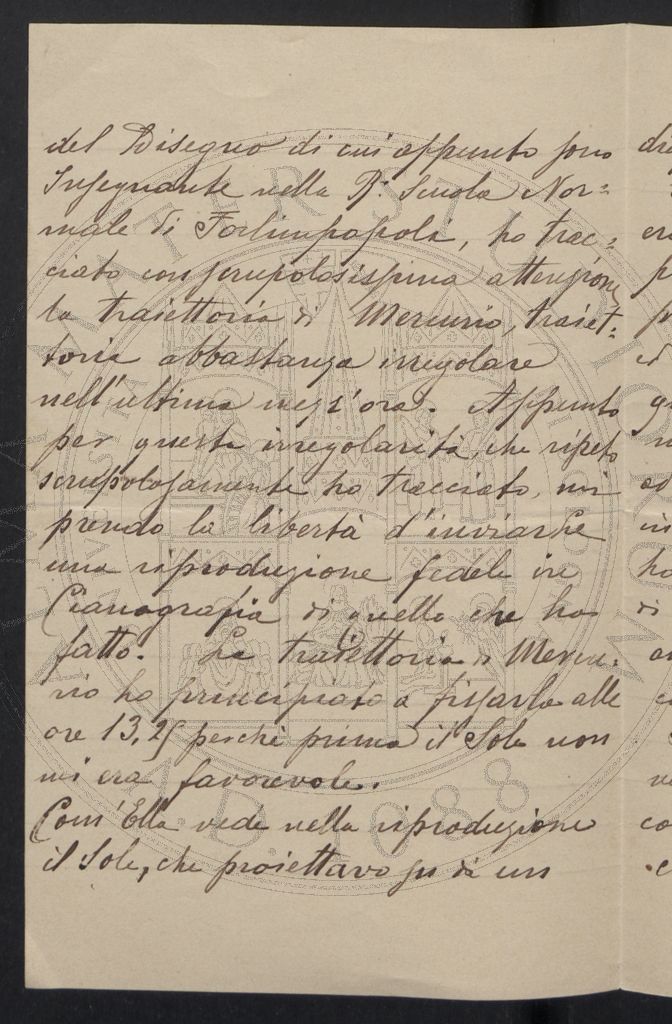 del Disegno di cui appunto sono
Insegnante nella R. Scuola Nor=
male di Forlimpopoli, ho trac=
ciato con scrupolosissima attenzione
la traiettoria di Mercurio, traiet=
toria abbastanza irregolare
nell'ultima mezz'ora. Appunto
per questa irregolarità, che ripeto
scrupolosamente ho tracciato, mi
prendo la libertà d'inviarle
una riproduzione fedele in
Cianografia di quello che ho
fatto. La traiettoria di Mercu=
rio ho principiato a fissarla alle
ore 13,25 perchè prima il Sole non
mi era favorevole.
Com'Ella vede nella riproduzione
il Sole, che proiettavo su di un
ALMA MATER STUDIORUM
A.D. 1088